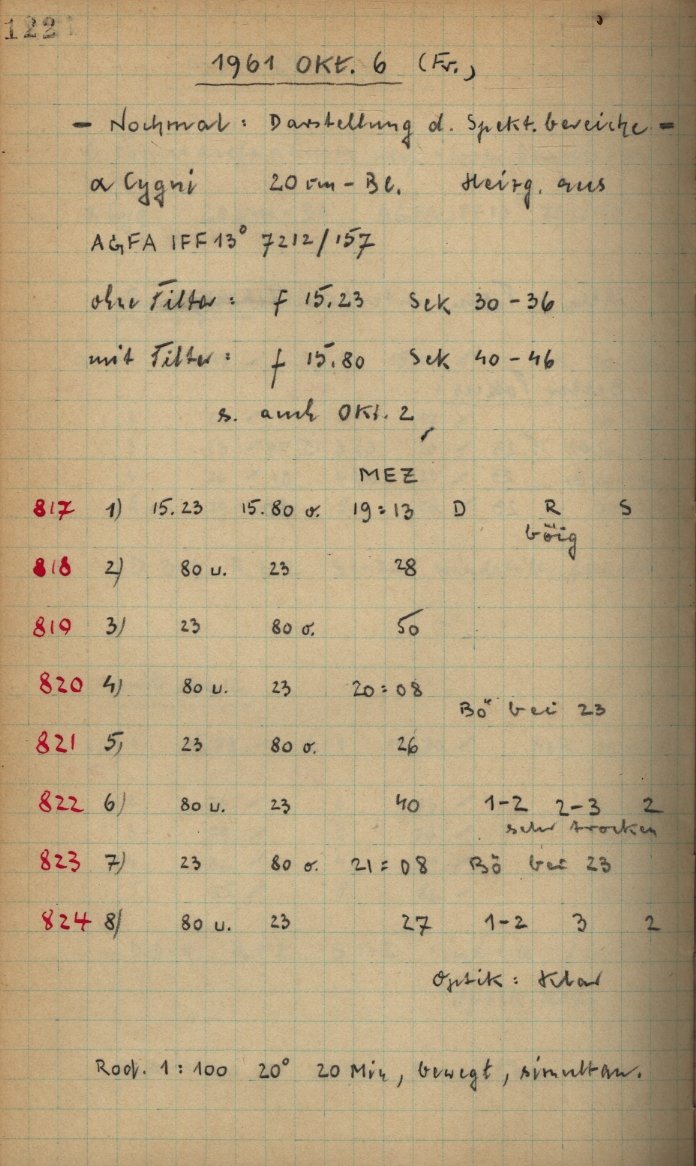 122
1961 OKt. 6 (Fr.)
- Nochmal: Darstellung d. Spekt. bereiche -
α Cygni 20 cm - Bl. Heizg. aus
AGFA IFF 13° 7212/157
ohne Filter: f 15.23 Sek 30-36
mit Filter: f 15.80 Sek 40-46
s. auch OKt. 2
MEZ
817 1) 15.23 15.80 o. 19:13 D R S
böig
818 2) 80 u. 23 28
819 3) 23 80 o. 50
820 4) 80 u. 23 20:08
Bö bei 23
821 5) 23 80 o. 26
822 6) 80 u. 23 40 1-2 2-3 2
sehr trocken
823 7) 23 80 o. 21:08 Bö bei 23
824 8) 80 u. 23 27 1-2 3 2
Optik: Klar
Rod. 1:100 20° 20 Min, bewegt, simultan.